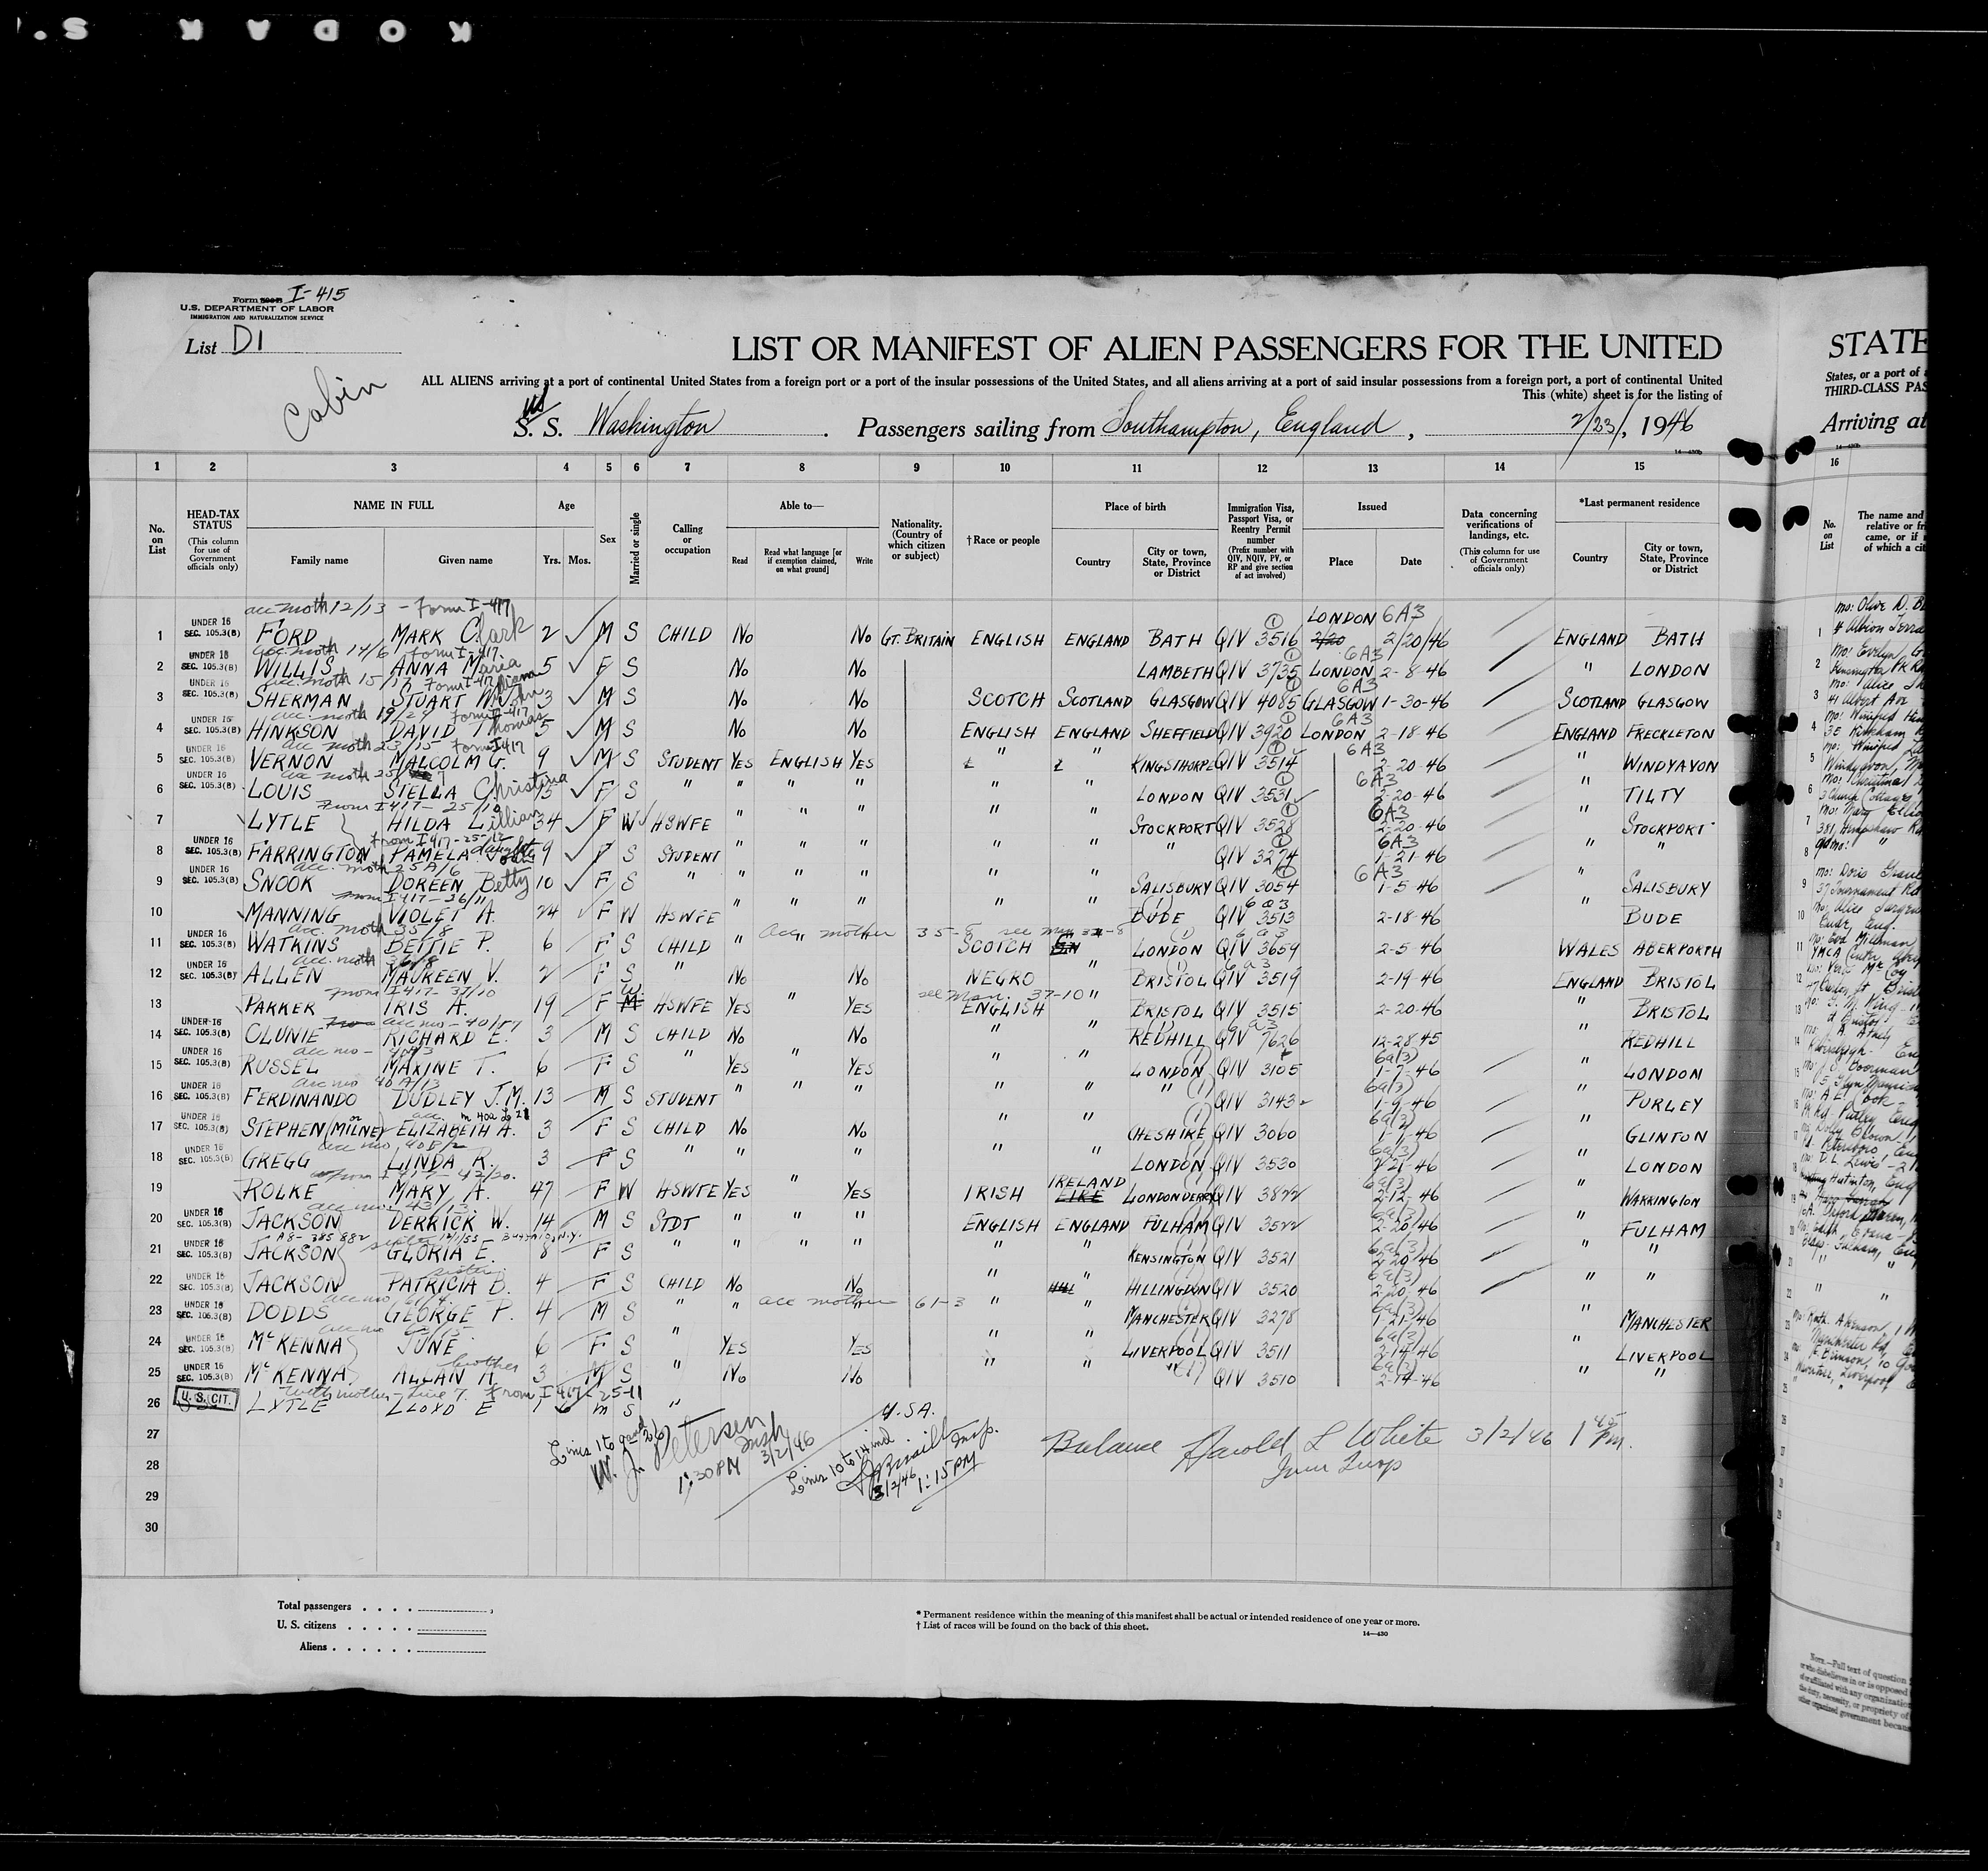 KODAK S.
Form I-415
U.S. DEPARTMENT OF LABOR
IMMIGRATION AND NATURALIZATION SERVICE
List D1
Cabin
LIST OR MANIFEST OF ALIEN PASSENGERS FOR THE UNITED
ALL ALIENS arriving at a port of continental United States from a foreign port or a port of the insular possessions of the United States, and all aliens arriving at a port of said insular possessions from a foreign port, a port of continental United
This (white) sheet is for the listing of
S. S. Washington . Passengers sailing from Southampton, England , 2/23/, 1946
14—430b
1 2 3 4 5 6 7 8 9 10 11 12 13 14 15
No. on List
HEAD-TAX STATUS (This column for use of Government officials only)
NAME IN FULL Family name Given name
Age Yrs. Mos.
Sex
Married or single
Calling or occupation
Able to— Read Read what language [or if exemption claimed, on what ground] Write
Nationality. (Country of which citizen or subject)
†Race or people
Place of birth Country City or town, State, Province or District
Immigration Visa, Passport Visa, or Reentry Permit number (Prefix number with QIV, NQIV, PV, or RP and give section of act involved)
Issued Place Date
Data concerning verifications of landings, etc. (This column for use of Government officials only)
*Last permanent residence Country City or town, State, Province or District
acc moth 12/13 - Form I-417 LONDON 6A3
1 UNDER 16 SEC. 105.3(B) FORD MARK Clark 2 M S CHILD No No GT. BRITAIN ENGLISH ENGLAND BATH QIV 3516 2/20 2/20/46 ENGLAND BATH
acc moth 14/6 Form I-417 6A3
2 UNDER 16 SEC. 105.3(B) WILLIS ANNA Maria 5 F S No No LAMBETH QIV 3735 LONDON 2-8-46 " LONDON
acc. moth 15/17 Form I-417 6A3
3 UNDER 16 SEC. 105.3(B) SHERMAN STUART W. 3 M S No No SCOTCH SCOTLAND GLASGOW QIV 4085 GLASGOW 1-30-46 SCOTLAND GLASGOW
acc. moth 19/29 Form I-417 6A3
4 UNDER 16 SEC. 105.3(B) HINKSON DAVID Thomas 5 M S No No ENGLISH ENGLAND SHEFFIELD QIV 3920 LONDON 2-18-46 ENGLAND FRECKLETON
acc moth 23/15 Form I 417 6A3
5 UNDER 16 SEC. 105.3(B) VERNON MALCOLM G. 9 M S STUDENT YES ENGLISH YES " " KINGSTHORPE QIV 3514 2-20-46 " WINDYAVON
acc moth 25/ 7 6A3
6 UNDER 16 SEC. 105.3(B) LOUIS STELLA Christina 15 F S " " " " " " LONDON QIV 3531 2-20-46 " TILTY
From I 417 - 25/10 6A3
7 LYTLE HILDA Lillian 34 F W HSWFE " " " " " STOCKPORT QIV 3528 2-20-46 " STOCKPORT
From I 417-25-12 daught 6A3
8 UNDER 16 SEC. 105.3(B) FARRINGTON PAMELA 9 F S STUDENT " " " " " " QIV 3274 1-21-46 " "
acc. moth 25A/6 6A3
9 UNDER 16 SEC. 105.3(B) SNOOK DOREEN Betty 10 F S " " " " " " SALISBURY QIV 3054 1-5-46 " SALISBURY
From I 417-26/11 6a3
10 MANNING VIOLET A. 24 F W HSWFE " " " " " BUDE QIV 3513 2-18-46 " BUDE
acc. moth 35/8 acc mother 35-8 6a3
11 UNDER 16 SEC. 105.3(B) WATKINS BETTIE P. 6 F S CHILD " " " SCOTCH LONDON QIV 3659 2-5-46 WALES ABERPORTH
acc. moth 36/8 6a3
12 UNDER 16 SEC. 105.3(B) ALLEN MAUREEN V. 2 F S " No No NEGRO " BRISTOL QIV 3519 2-19-46 ENGLAND BRISTOL
From I 417- 37/10 see Man. 37-10
13 PARKER IRIS A. 19 F W M HSWFE YES " YES ENGLISH " BRISTOL QIV 3515 2-20-46 " BRISTOL
acc mo - 40/57 6a3
14 UNDER 16 SEC. 105.3(B) CLUNIE RICHARD E. 3 M S CHILD No No " " REDHILL QIV 7626 12-28-45 " REDHILL
acc mo - 6a(3)
15 UNDER 16 SEC. 105.3(B) RUSSEL MAXINE T. 6 F S " YES " YES " " LONDON QIV 3105 1-7-46 " LONDON
acc mo 40A/13 6a(3)
16 UNDER 16 SEC. 105.3(B) FERDINANDO DUDLEY J.M. 13 M S STUDENT " " " " " " QIV 3143 1-9-46 " PURLEY
acc. m 40a 6a(3)
17 UNDER 16 SEC. 105.3(B) STEPHEN (or MILNE) ELIZABETH A. 3 F S CHILD No No " " CHESHIRE QIV 3060 1-1-46 " GLINTON
acc mo 40B/2 6a(3)
18 UNDER 16 SEC. 105.3(B) GREGG LINDA R. 3 F S " " " " " LONDON QIV 3530 2/21-46 " LONDON
From I 417- 42/20. IRELAND 6a(3)
19 ROLKE MARY A. 47 F W HSWFE YES " YES IRISH EIRE LONDONDERRY QIV 3822 2-12-46 " WARRINGTON
acc mo. 43/13. 6a(3)
20 UNDER 16 SEC. 105.3(B) JACKSON DERRICK W. 14 M S STDT " " " ENGLISH ENGLAND FULHAM QIV 3522 2-20/46 " FULHAM
A8-385882 sister 6a(3)
21 UNDER 16 SEC. 105.3(B) JACKSON GLORIA E. 8 F S " " " " " " KENSINGTON QIV 3521 2/20/46 " "
sister 6a(3)
22 UNDER 16 SEC. 105.3(B) JACKSON PATRICIA B. 4 F S CHILD No No " " HILLINGDON QIV 3520 2-20-46 " "
acc mo 61/4. acc mother 61-3 6a(3)
23 UNDER 16 SEC. 105.3(B) DODDS GEORGE P. 4 M S " " " " " MANCHESTER QIV 3278 1-21-46 " MANCHESTER
acc mo 6a(3)
24 UNDER 16 SEC. 105.3(B) McKENNA JUNE 6 F S " YES YES " " LIVERPOOL QIV 3511 2-14-46 " LIVERPOOL
brother 6a(3)
25 UNDER 16 SEC. 105.3(B) McKENNA ALLAN A. 3 M S " No No " " " QIV 3510 2-14-46 " "
with mother - Line 7. From I 417 - 25-11
26 U.S. CIT. LYTLE LLOYD E 1 M S " U.S.A.
27
28
29
30
Lines 1 to 9 and 26
W. J. Petersen
1:30 PM 3/2/46
Lines 10 to 14 incl
Insp.
3/2/46 1:15 PM
Balance Harold L White 3/2/46 1 45 Pm.
Imm Insp
Total passengers . . . .
U. S. citizens . . . . .
Aliens . . . . . .
* Permanent residence within the meaning of this manifest shall be actual or intended residence of one year or more.
† List of races will be found on the back of this sheet.
14—430
STATE
States, or a port of
THIRD-CLASS PAS
Arriving at
16
No. on List
The name and
relative or fr
came, or if
of which a cit